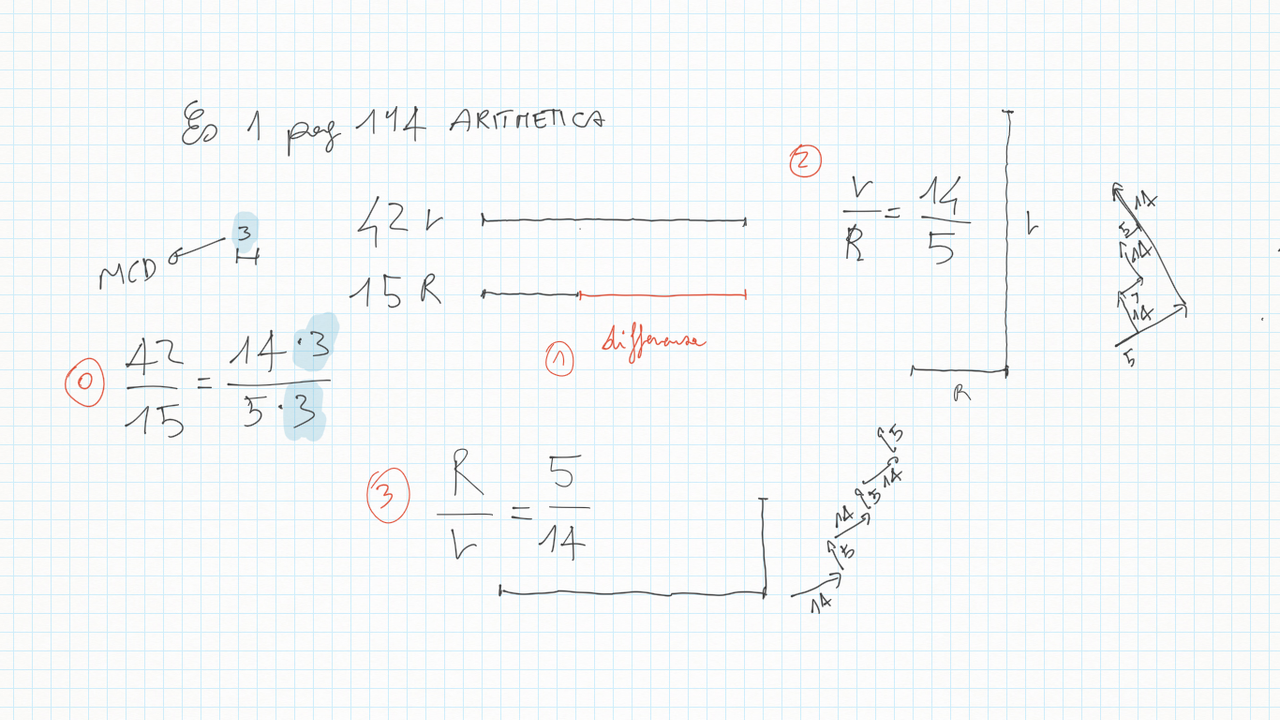 Es 1 pag 144 ARITMETICA
42 V
15 R
3
MCD
differenza
0
42/15 = 14·3/5·3
1
2
V/R = 14/5
V
R
14
5
14
5
14
5
3
R/V = 5/14
5
14
5
14
5
14